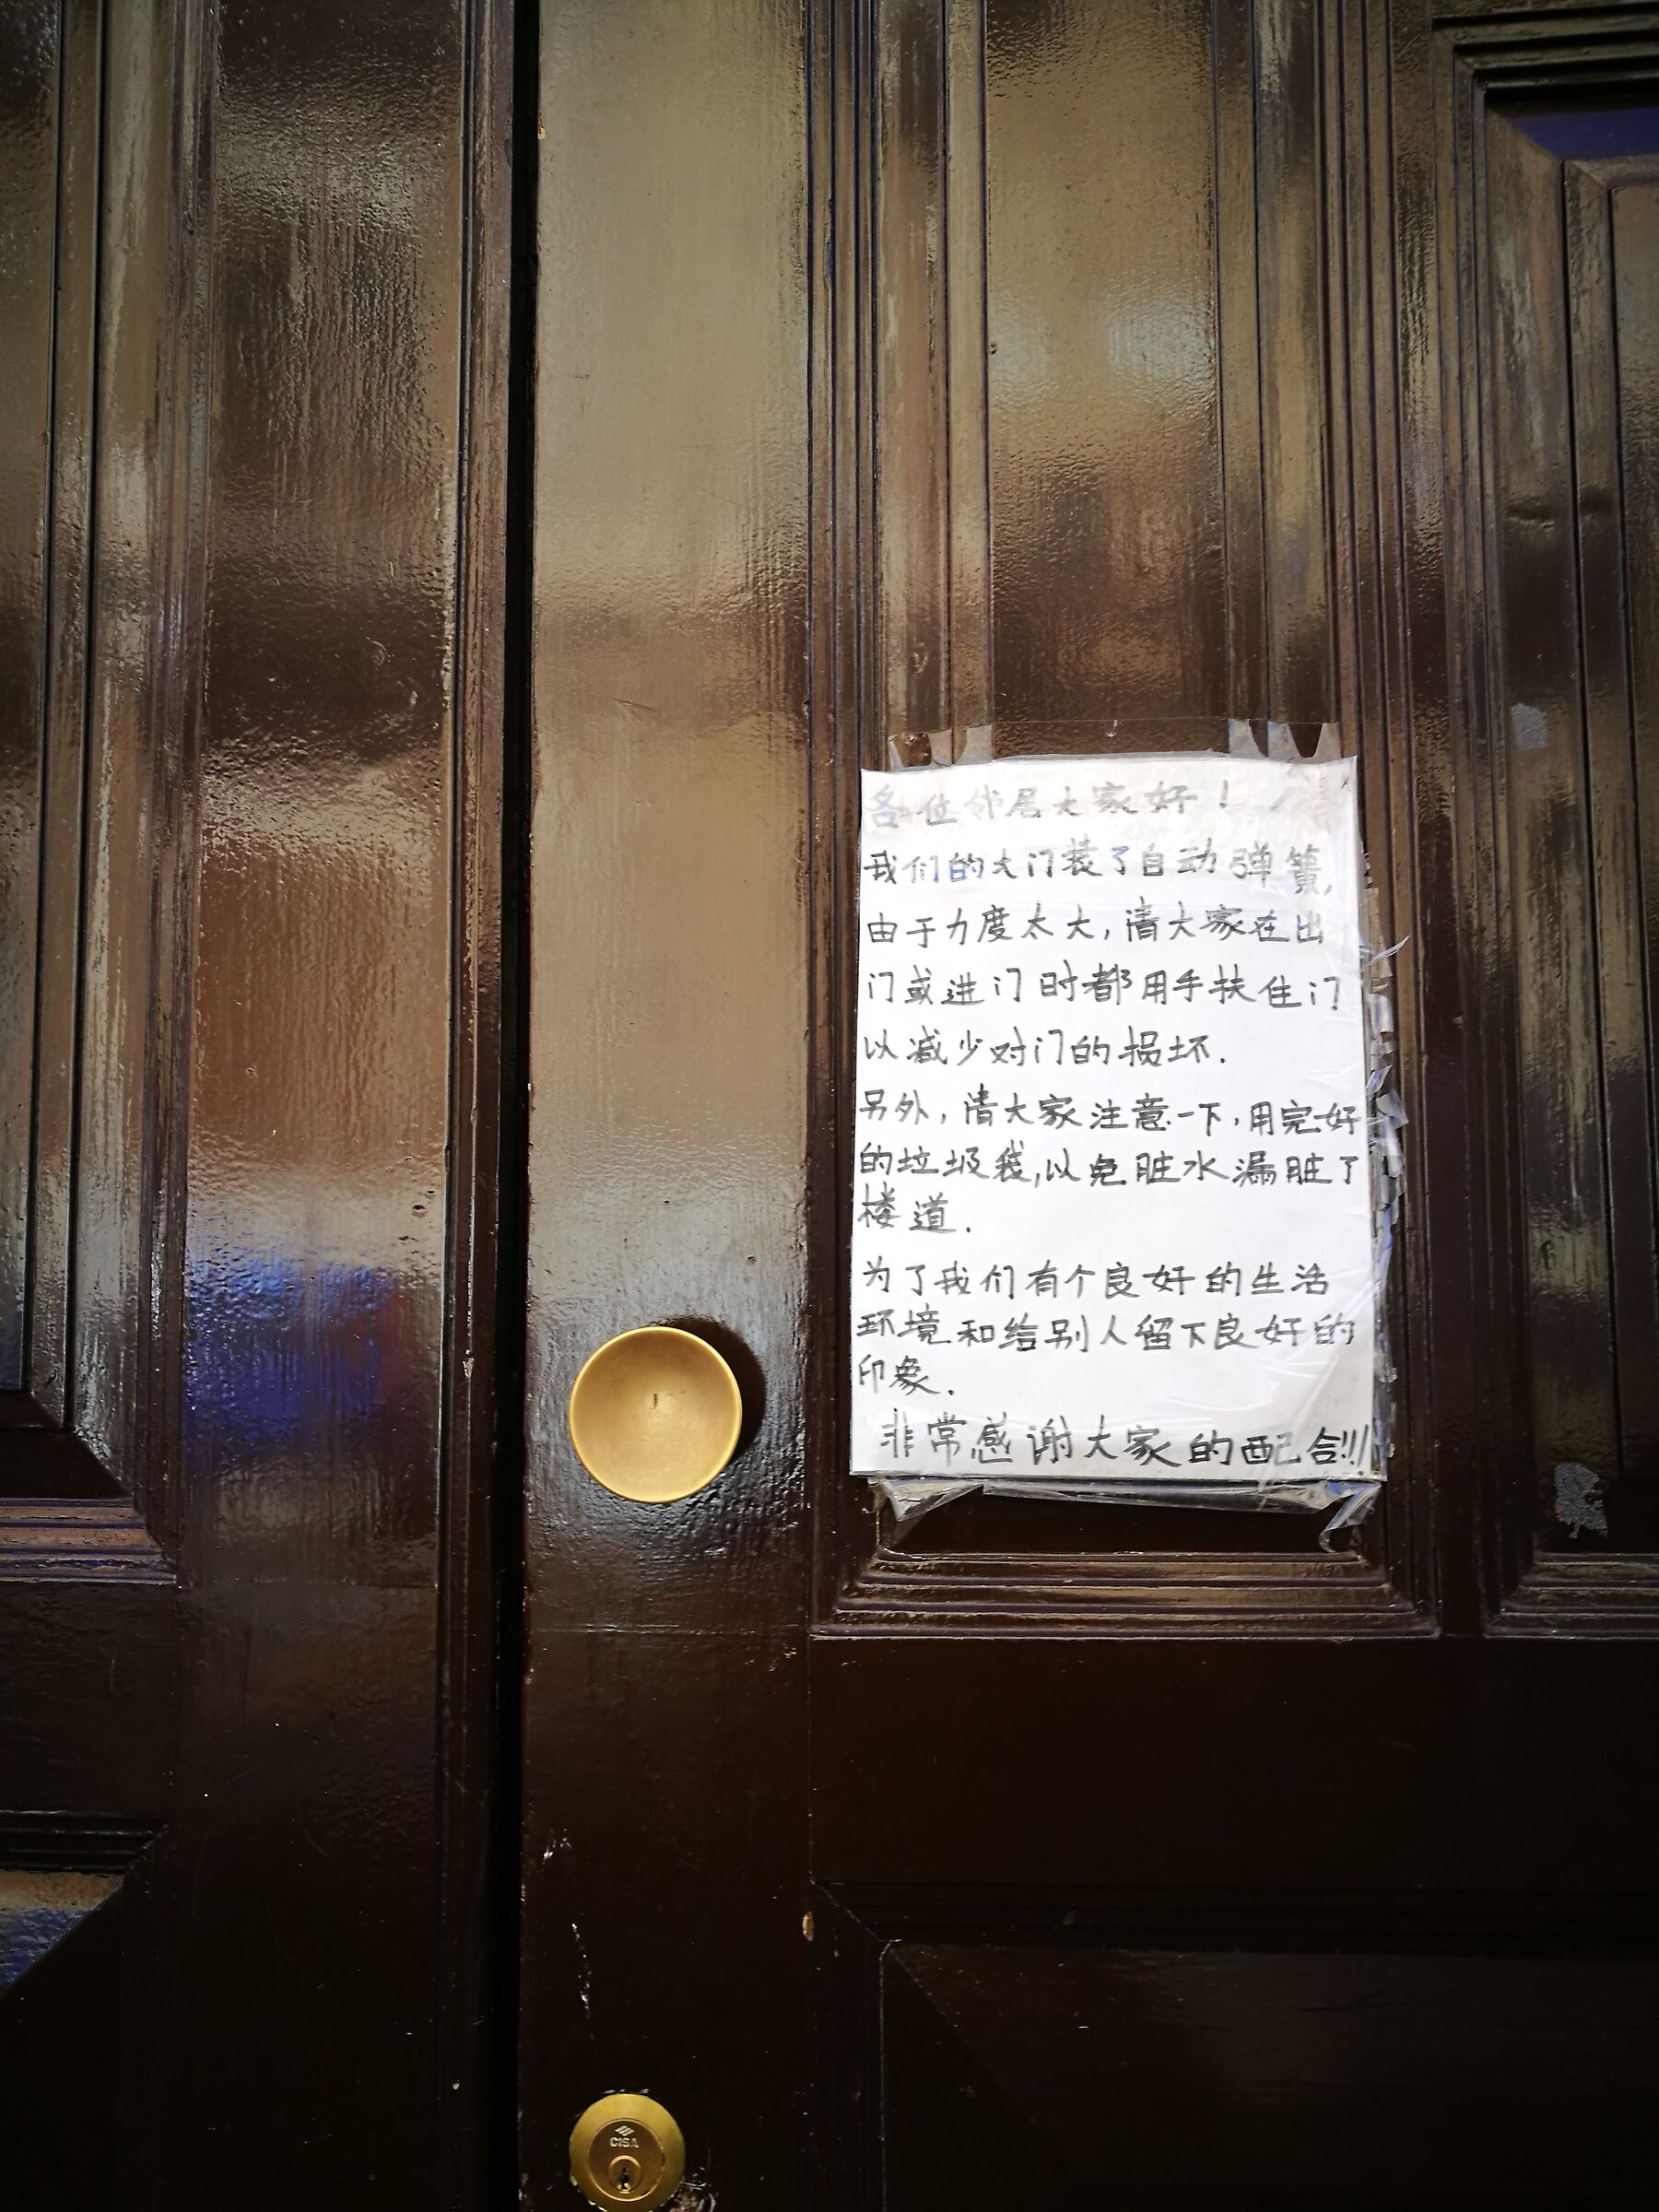 各位邻居大家好！
我们的大门装了自动弹簧,
由于力度太大,请大家在出
门或进门时都用手扶住门
以减少对门的损坏.
另外,请大家注意一下,用完好
的垃圾袋,以免脏水漏脏了
楼道.
为了我们有个良好的生活
环境和给别人留下良好的
印象.
非常感谢大家的配合!!!
CISA